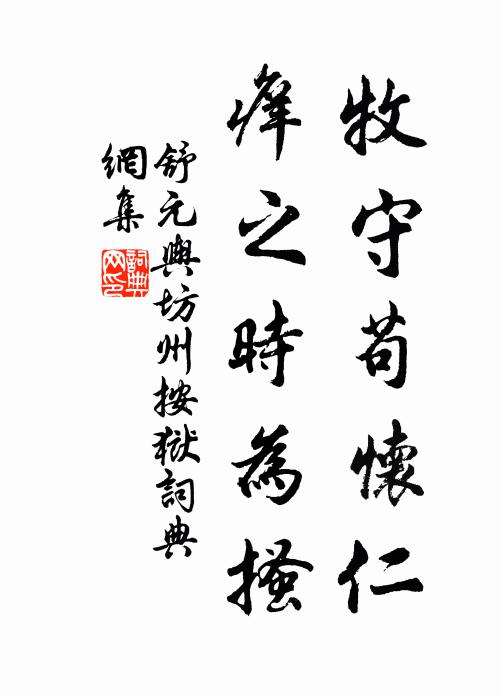 牧守苟懷仁
痒之時為搔
舒元輿坊州按獄詞典
網集
詞典
网印